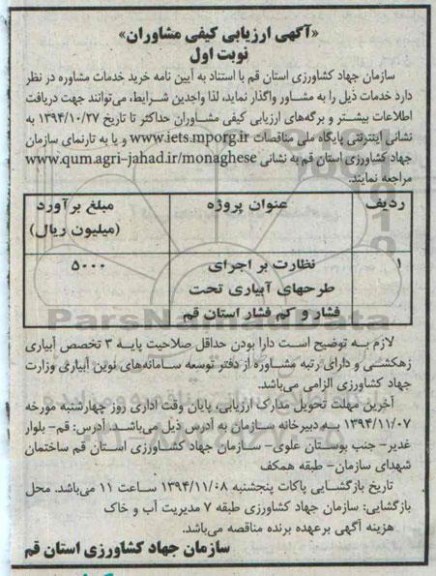 «آگهی ارزیابی کیفی مشاوران»
نوبت اول
سازمان جهاد کشاورزی استان قم با استناد به آیین نامه خرید خدمات مشاوره در نظر
دارد خدمات ذیل را به مشاور واگذار نماید، لذا واجدین شرایط، می‌توانند جهت دریافت
اطلاعات بیشتر و برگه‌های ارزیابی کیفی مشاوران حداکثر تا تاریخ ۱۳۹۴/۱۰/۲۷ به
نشانی اینترنتی پایگاه ملی مناقصات www.iets.mporg.ir و یا به تارنمای سازمان
جهاد کشاورزی استان قم به نشانی www.qum.agri-jahad.ir/monaghese
مراجعه نمایند.
ردیف عنوان پروژه مبلغ برآورد
(میلیون ریال)
۱ نظارت بر اجرای ۵۰۰۰
طرحهای آبیاری تحت
فشار و کم فشار استان قم
لازم به توضیح است دارا بودن حداقل صلاحیت پایه ۳ تخصص آبیاری
زهکشی و دارای رتبه مشاوره از دفتر توسعه سامانه‌های نوین آبیاری وزارت
جهاد کشاورزی الزامی می‌باشد.
آخرین مهلت تحویل مدارک ارزیابی، پایان وقت اداری روز چهارشنبه مورخه
۱۳۹۴/۱۱/۰۷ به دبیرخانه سازمان به آدرس ذیل می‌باشد. آدرس: قم- بلوار
غدیر- جنب بوستان علوی- سازمان جهاد کشاورزی استان قم ساختمان
شهدای سازمان- طبقه همکف
تاریخ بازگشایی پاکات پنجشنبه ۱۳۹۴/۱۱/۰۸ ساعت ۱۱ می‌باشد. محل
بازگشایی: سازمان جهاد کشاورزی طبقه ۷ مدیریت آب و خاک
هزینه آگهی برعهده برنده مناقصه می‌باشد.
سازمان جهاد کشاورزی استان قم